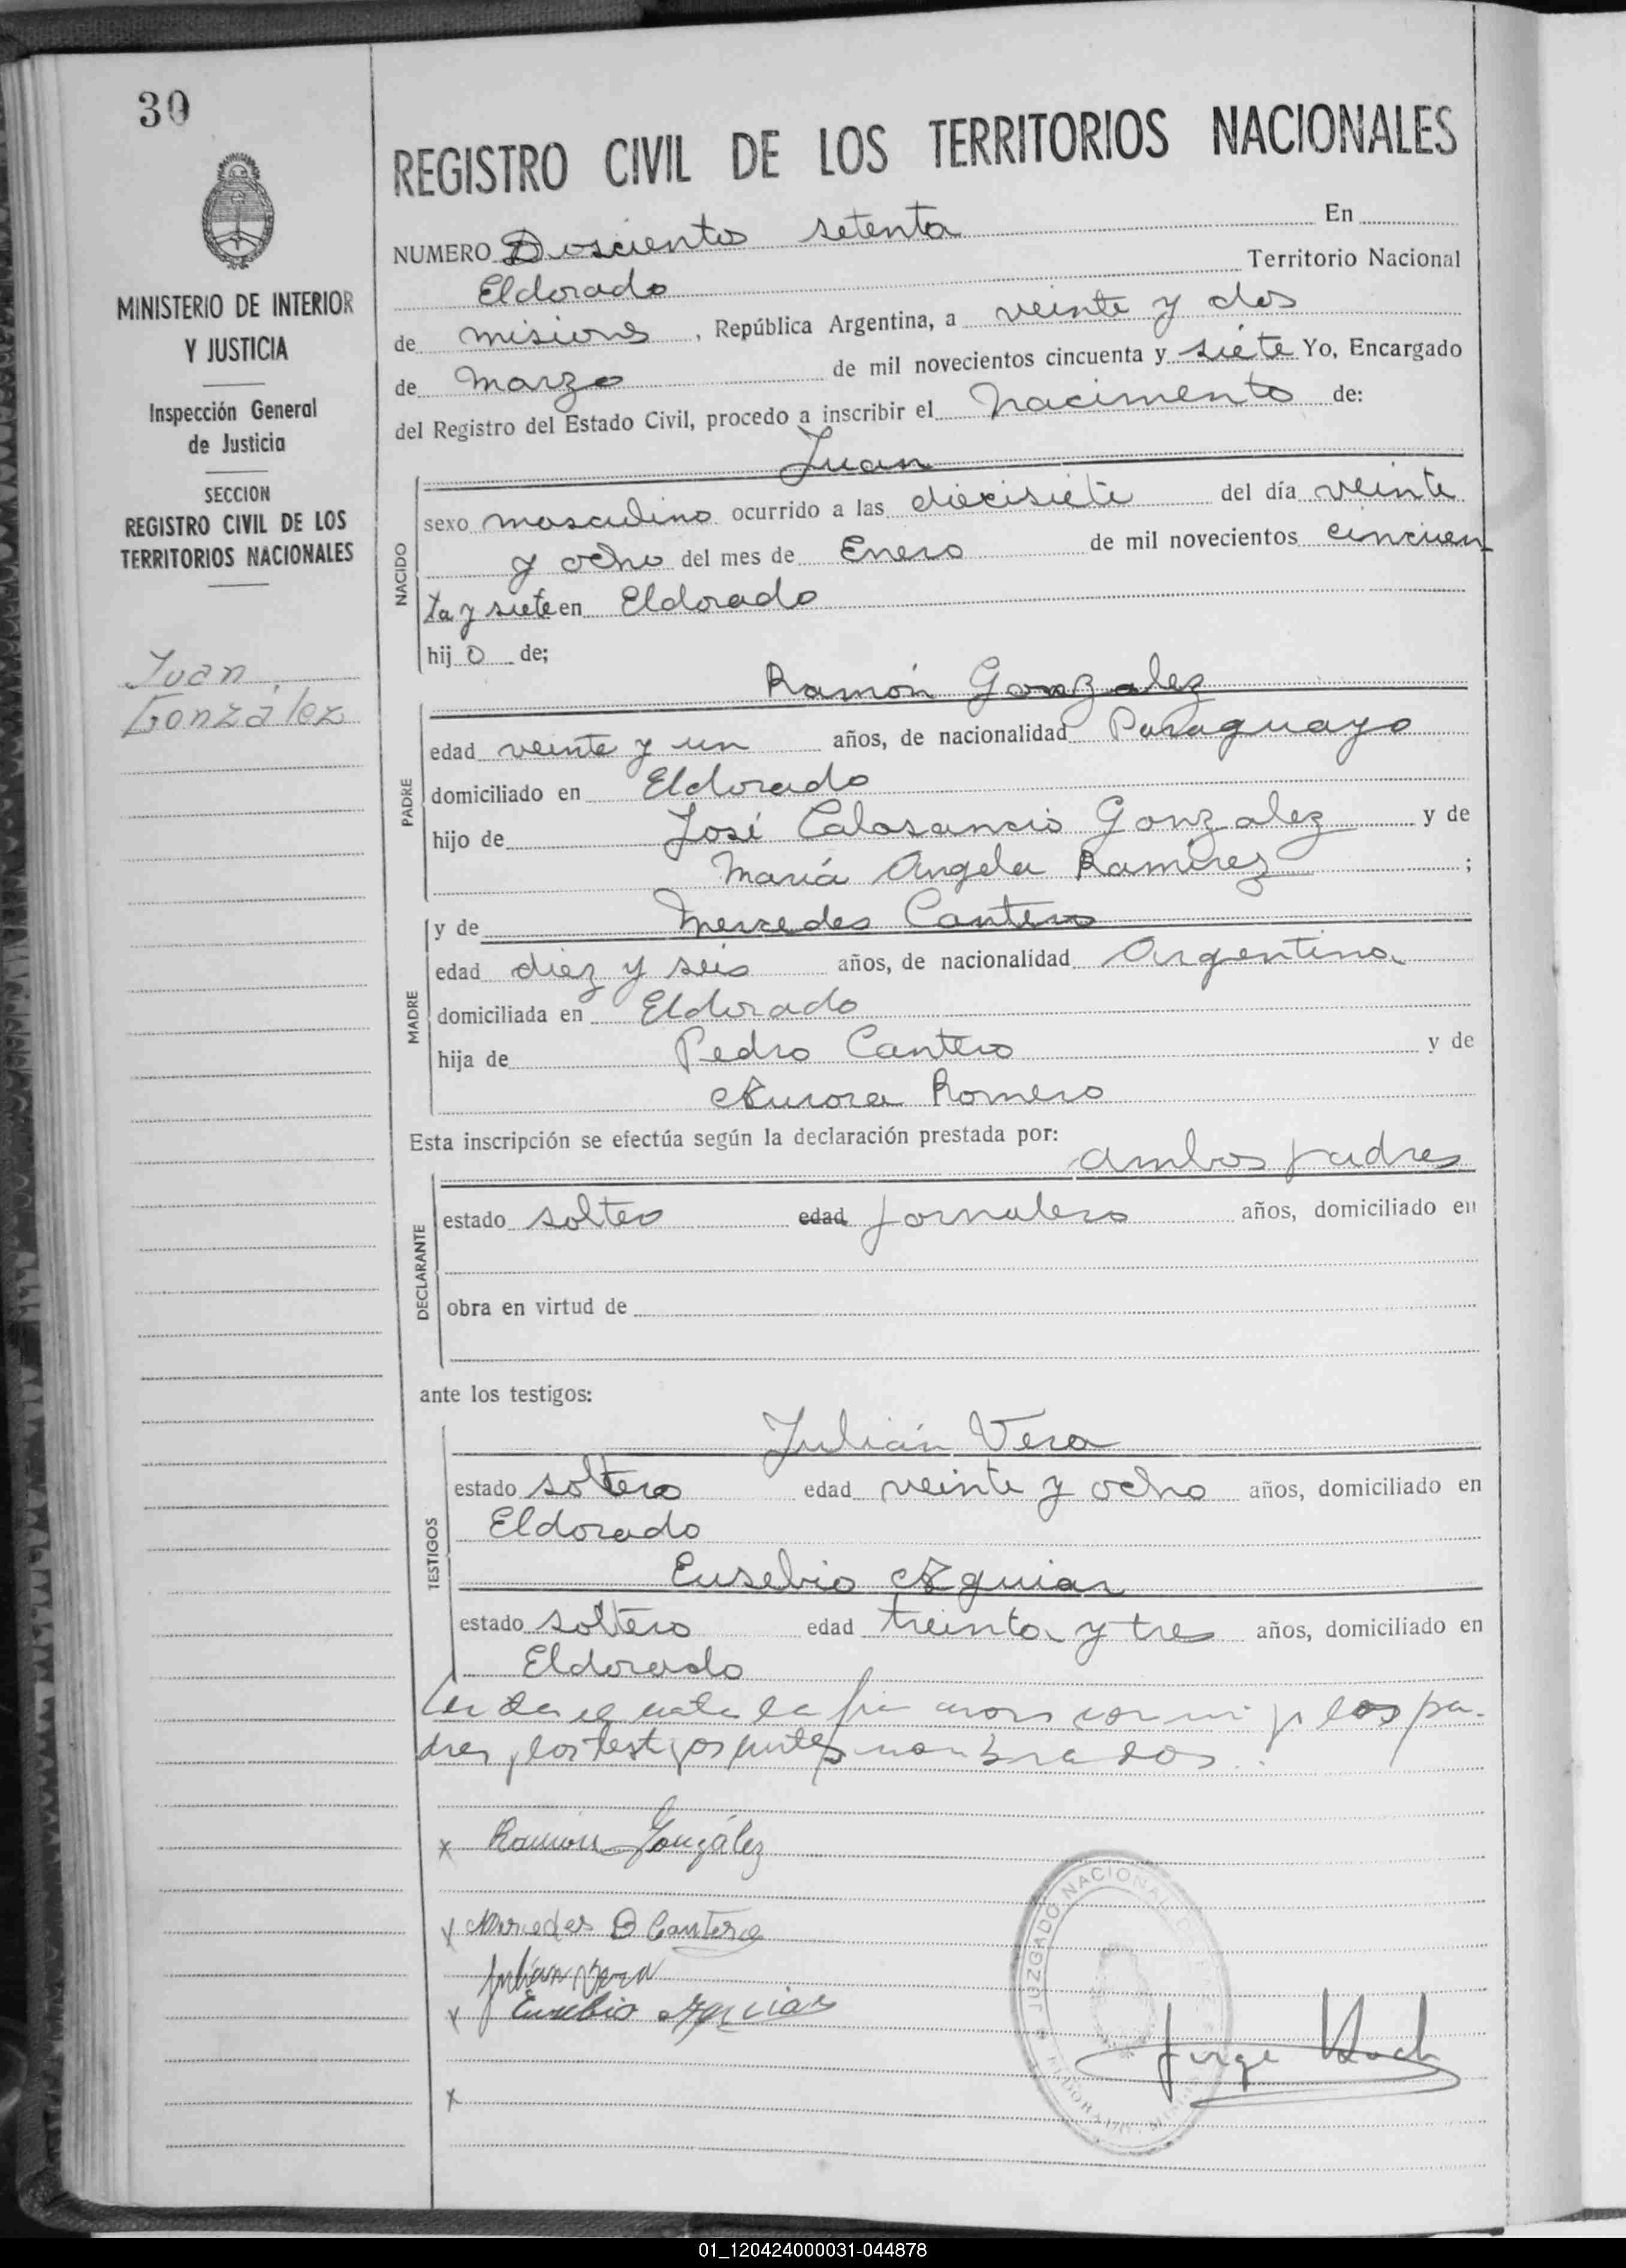 30
MINISTERIO DE INTERIOR
Y JUSTICIA
Inspección General
de Justicia
SECCION
REGISTRO CIVIL DE LOS
TERRITORIOS NACIONALES
Juan
González
REGISTRO CIVIL DE LOS TERRITORIOS NACIONALES
NUMERO Doscientos setenta En
Eldorado Territorio Nacional
de misiones, República Argentina, a veinte y dos
de marzo de mil novecientos cincuenta y siete Yo, Encargado
del Registro del Estado Civil, procedo a inscribir el nacimento de:
Juan
NACIDO
sexo masculino ocurrido a las diecisiete del día veinte
y ocho del mes de Enero de mil novecientos cincuen-
ta y siete en Eldorado
hij o de;
Ramón Gonzalez
PADRE
edad veinte y un años, de nacionalidad Paraguayo
domiciliado en Eldorado
hijo de José Calasancio Gonzalez y de
María Angela Ramírez ;
MADRE
y de Mercedes Cantero
edad diez y seis años, de nacionalidad Argentina
domiciliada en Eldorado
hija de Pedro Cantero y de
Aurora Romero
Esta inscripción se efectúa según la declaración prestada por:
ambos padres
DECLARANTE
estado soltero edad jornalero años, domiciliado en
obra en virtud de
ante los testigos:
TESTIGOS
Julián Vera
estado soltero edad veinte y ocho años, domiciliado en
Eldorado
Eusebio Aguiar
estado soltero edad treinta y tres años, domiciliado en
Eldorado
el acta la los pa-
dres, los testigos antes nombrados.
x Ramón González
x Mercedes Cantero
Julian Vera
x Eusebio Aguiar
x
JUZGADO NACIONAL
Jorge
01_120424000031-044878